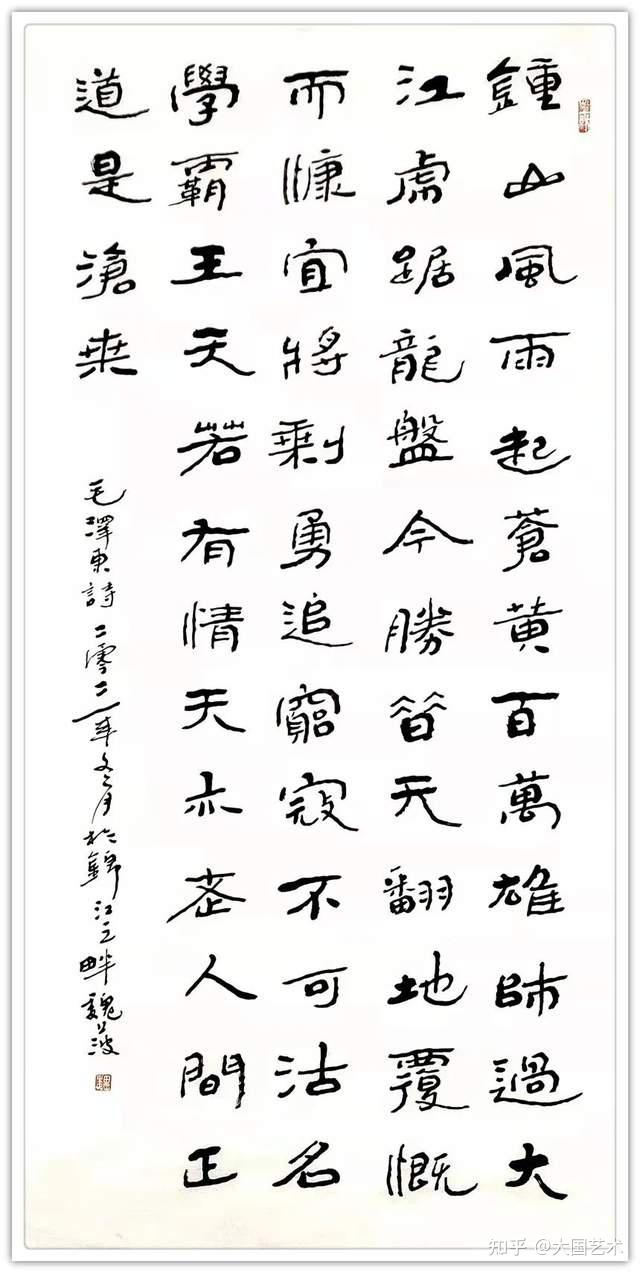 鍾山風雨起蒼黃百萬雄師過大
江虎踞龍盤今勝昔天翻地覆慨
而慷宜將剩勇追窮寇不可沽名
學霸王天若有情天亦老人間正
道是滄桒
毛澤東詩二零二一年冬月於錦江之畔魏
知乎 @大国艺术